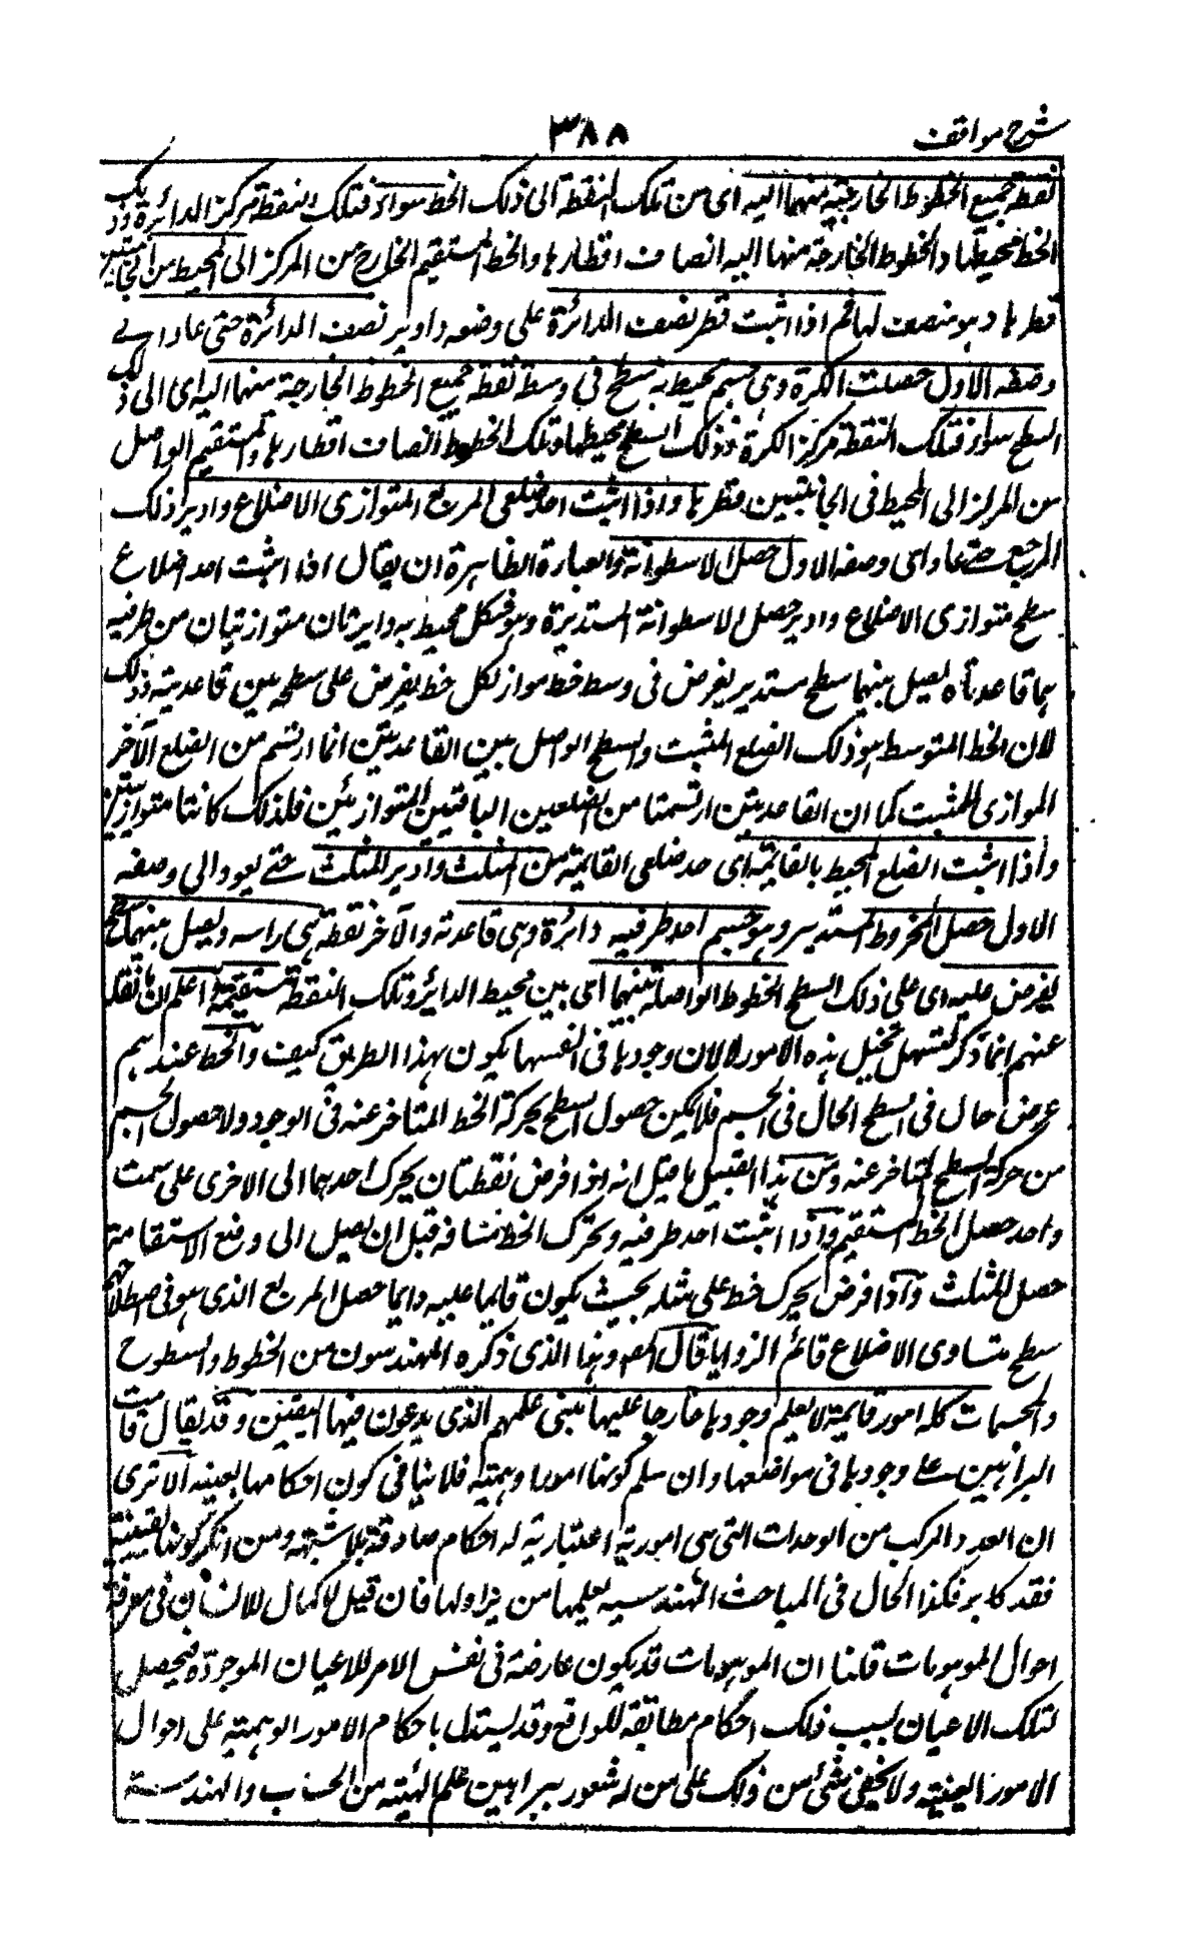 شرح مواقف
٣٨٨
نقطة جميع الخطوط الخارجة منها اليه اى من تلك النقطة الى ذلك الخط سواء فتلك النقطة مركز الدائرة وذلك
الخط محيطها والخطوط الخارجة منها اليه انصاف اقطارها والخط المستقيم الخارج من المركز الى المحيط من الجانبين
قطرها وهو منصف لها ثم اذا اثبت قطر نصف الدائرة على وضعه وادير نصف الدائرة حتى عاد الى
وضعه الاول حصلت الكرة وهى جسم يحيط به سطح فى وسطه نقطة جميع الخطوط الخارجة منها اليه اى الى ذلك
السطح سواء فتلك النقطة مركز الكرة وذلك السطح محيطها وتلك الخطوط انصاف اقطارها والمستقيم الواصل
من المركز الى المحيط فى الجانبين قطرها واذا اثبت احد ضلعى المربع المتوازى الاضلاع وادير ذلك
المربع حتى عاد الى وضعه الاول حصل الاسطوانة والعبارة الظاهرة ان يقال اذا اثبت احد اضلاع
سطح متوازى الاضلاع وادير حصل الاسطوانة المستديرة وهو شكل يحيط به دايرتان متوازيتان من طرفيه
هما قاعدتاه يصل بينهما سطح مستدير يفرض فى وسطه خط مواز لكل خط يفرض على سطحه بين قاعدتيه وذلك
لان الخط المتوسط هو ذلك الضلع المثبت والسطح الواصل بين القاعدتين انما ارتسم من الضلع الآخر
الموازى للمثبت كما ان القاعدتين ارتسمتا من الضلعين الباقيين المتوازيين فلذلك كانتا متوازيتين
واذا اثبت الضلع المحيط بالقائمة اى احد ضلعى القايمة من المثلث وادير المثلث حتى يعود الى وضعه
الاول حصل المخروط المستدير وهو جسم احد طرفيه دائرة وهى قاعدته والآخر نقطة هى راسه ويصل بينهما سطح
يفرض عليه اى على ذلك السطح الخطوط الواصلة بينهما اى بين محيط الدائرة وتلك النقطة مستقيمة اعلم ان ما نقله
عنهم انما ذكر لتسهل تخيل هذه الامور لا لان وجودها فى انفسها يكون بهذا الطريق كيف والخط عندهم
عرض حال فى السطح الحال فى الجسم فلا يمكن حصول السطح بحركة الخط المتاخر عنه فى الوجود ولا حصول الجسم
من حركة السطح المتاخر عنه ومن هذا القبيل ما قيل انه اذا فرض نقطتان يحرك احدهما الى الاخرى على سمت
واحد حصل الخط المستقيم واذا اثبت احد طرفيه وتحرك الخط مسافة قبل ان يصل الى وضع الاستقامة
حصل المثلث واذا فرض يحرك خط على مثله بحيث يكون قائما عليه دايما حصل المربع الذى هو فى اصطلاحهم
سطح متساوى الاضلاع قائم الزوايا قال المص وهذا الذى ذكره المهندسون من الخطوط والسطوح
والمجسمات كله امور قايمة لا يعلم وجودها خارجا عليها يبنى علمهم الذى يدعون فيها اليقين وقد يقال قامت
البراهين على وجودها فى مواضعها وان سلم كونها امورا وهمية فلا ينافى كون احكامها يقينية الا ترى
ان العدد المركب من الوحدات التى هى امور اعتبارية له احكام صادقة بلا شبهة ومن انكر كونها يقينية
فقد كابر فكذا الحال فى المباحث الهندسية يعلمها من يزاولها فان قيل لا كمال للانسان فى معرفة
احوال الموهومات قلنا ان الموهومات قد يكون عارضة فى نفس الامر للاعيان الموجودة فيحصل
لتلك الاعيان بسبب ذلك احكام مطابقة للواقع وقد يستدل باحكام الامور الوهمية على احوال
الامور العينية ولا يخفى شئ من ذلك على من له شعور ببراهين علم الهيئة من الحساب والهندسة